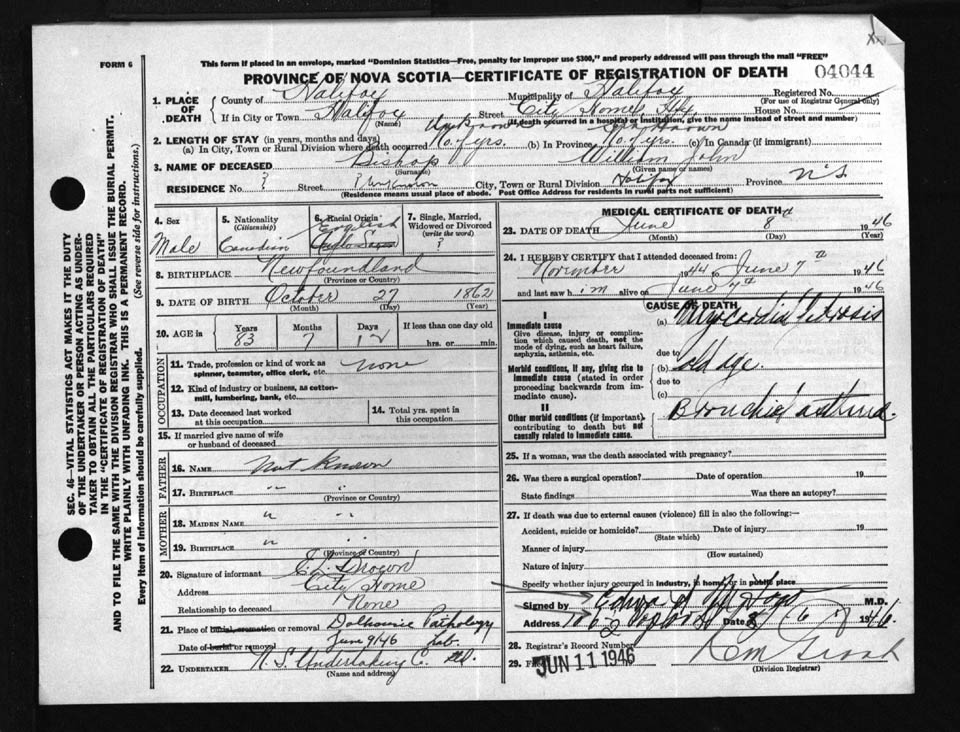 FORM 6
This form if placed in an envelope, marked "Dominion Statistics—Free, penalty for improper use $300," and properly addressed will pass through the mail "FREE"
PROVINCE OF NOVA SCOTIA—CERTIFICATE OF REGISTRATION OF DEATH
04044
1. PLACE OF DEATH
County of Halifax Municipality of Halifax Registered No.
(For use of Registrar General only)
If in City or Town Halifax Street City Home, Hfx. House No.
(Name) (If death occurred in a hospital or institution, give the name instead of street and number)
2. LENGTH OF STAY (in years, months and days)
(a) In City, Town or Rural Division where death occurred Unknown No. of yrs. (b) In Province Unknown No. of yrs. (c) In Canada (if immigrant)
3. NAME OF DECEASED Bishop William John
(Surname) (Given name or names)
RESIDENCE No. ? Street ? Unknown City, Town or Rural Division Halifax Province N.S.
(Residence means usual place of abode. Post Office Address for residents in rural parts not sufficient)
4. Sex
Male
5. Nationality
(Citizenship)
Canadian
6. Racial Origin
English
7. Single, Married, Widowed or Divorced
(write the word)
?
8. BIRTHPLACE Newfoundland
(Province or Country)
9. DATE OF BIRTH October 27 1862
(Month) (Day) (Year)
10. AGE in Years Months Days If less than one day
83 7 12 hrs. or min.
OCCUPATION
11. Trade, profession or kind of work as spinner, teamster, office clerk, etc. none
12. Kind of industry or business, as cotton-mill, lumbering, bank, etc.
13. Date deceased last worked at this occupation
14. Total yrs. spent in this occupation
15. If married give name of wife or husband of deceased
FATHER
16. NAME Not Known
17. BIRTHPLACE " "
(Province or Country)
MOTHER
18. MAIDEN NAME " "
19. BIRTHPLACE " "
(Province or Country)
20. Signature of informant C.L. Brown
Address City Home
Relationship to deceased None
21. Place of burial, cremation or removal Dalhousie Pathology Lab.
Date of burial or removal June 9/46
22. UNDERTAKER N.S. Undertaking Co. Ltd.
(Name and address)
MEDICAL CERTIFICATE OF DEATH
23. DATE OF DEATH June 8th 1946
(Month) (Day) (Year)
24. I HEREBY CERTIFY that I attended deceased from:
November 1944 to June 7th 1946
and last saw him alive on June 7th 1946
CAUSE OF DEATH
I
Immediate cause
Give disease, injury or complication which caused death, not the mode of dying, such as heart failure, asphyxia, asthenia, etc.
(a) Myocardial fibrosis
due to
Morbid conditions, if any, giving rise to immediate cause (stated in order proceeding backwards from immediate cause).
(b) old age.
due to
(c)
II
Other morbid conditions (if important) contributing to death but not causally related to immediate cause.
Bronchial asthma.
25. If a woman, was the death associated with pregnancy?
26. Was there a surgical operation? Date of operation 19
State findings Was there an autopsy?
27. If death was due to external causes (violence) fill in also the following:—
Accident, suicide or homicide? Date of injury 19
(State which)
Manner of injury
(How sustained)
Nature of injury
Specify whether injury occurred in industry, in home, or in public place
Signed by M.D.
Address Date 1946
28. Registrar's Record Number
29. JUN 11 1946
(Division Registrar)
SEC. 46—VITAL STATISTICS ACT MAKES IT THE DUTY OF THE UNDERTAKER OR PERSON ACTING AS UNDERTAKER TO OBTAIN ALL THE PARTICULARS REQUIRED IN THE "CERTIFICATE OF REGISTRATION OF DEATH" AND TO FILE THE SAME WITH THE DIVISION REGISTRAR WHO SHALL ISSUE THE BURIAL PERMIT.
WRITE PLAINLY WITH UNFADING INK. THIS IS A PERMANENT RECORD.
Every item of Information should be carefully supplied. (See reverse side for instructions.)